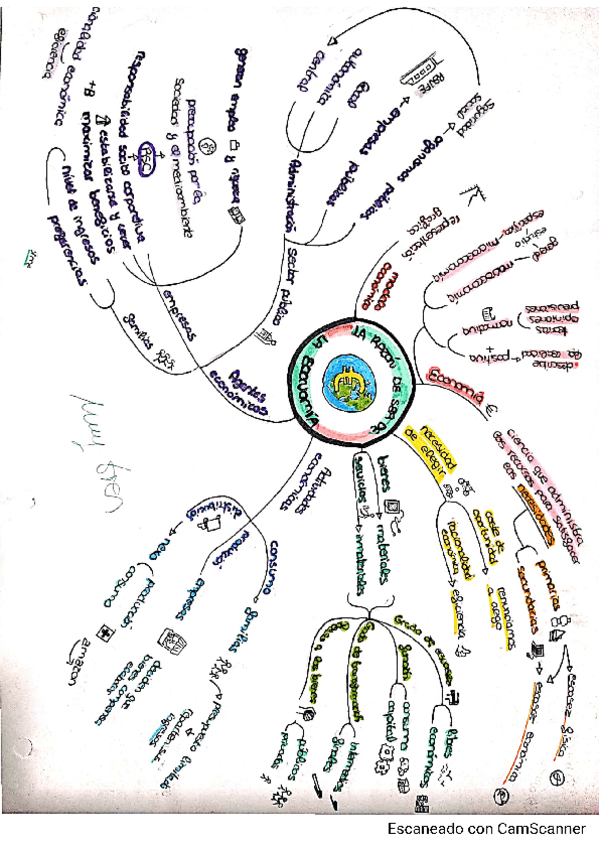 LA RAZÓN DE SER DE LA ECONOMÍA
Economía
ciencia que administra
los recursos para satisfacer
las necesidades
primarias
secundarias
escasez física
escasez económica
describe
la realidad
positiva
normativa
teorías
opiniones
previsiones
macroeconomía
global
microeconomía
estudio
específica
modelo
económico
representación
gráfica
necesidad
de elegir
coste de
oportunidad
renunciamos
a algo
racionalidad
económica
eficiencia
bienes
materiales
servicios
inmateriales
Grado de escasez
libres
económicos
función
consumo
capital
Grado de transformación
intermedios
finales
Acceso a los bienes
públicos
privados
Actividades
económicas
consumo
familias
presupuesto limitado
producir
empresas
deciden que
bienes
distribución
nexo
producción
consumo
amazon
Agentes
económicos
familias
preferencias
nivel de ingresos
empresas
maximizar beneficios
estabilizarse y crecer
responsabilidad social corporativa
RSC
preocupación por la
sociedad y el medioambiente
generan empleo y riqueza
eficiencia
sector público
Administración
central
autonómica
local
empresas públicas
RENFE
organismos públicos
Seguridad
social
Muy bien
Escaneado con CamScanner